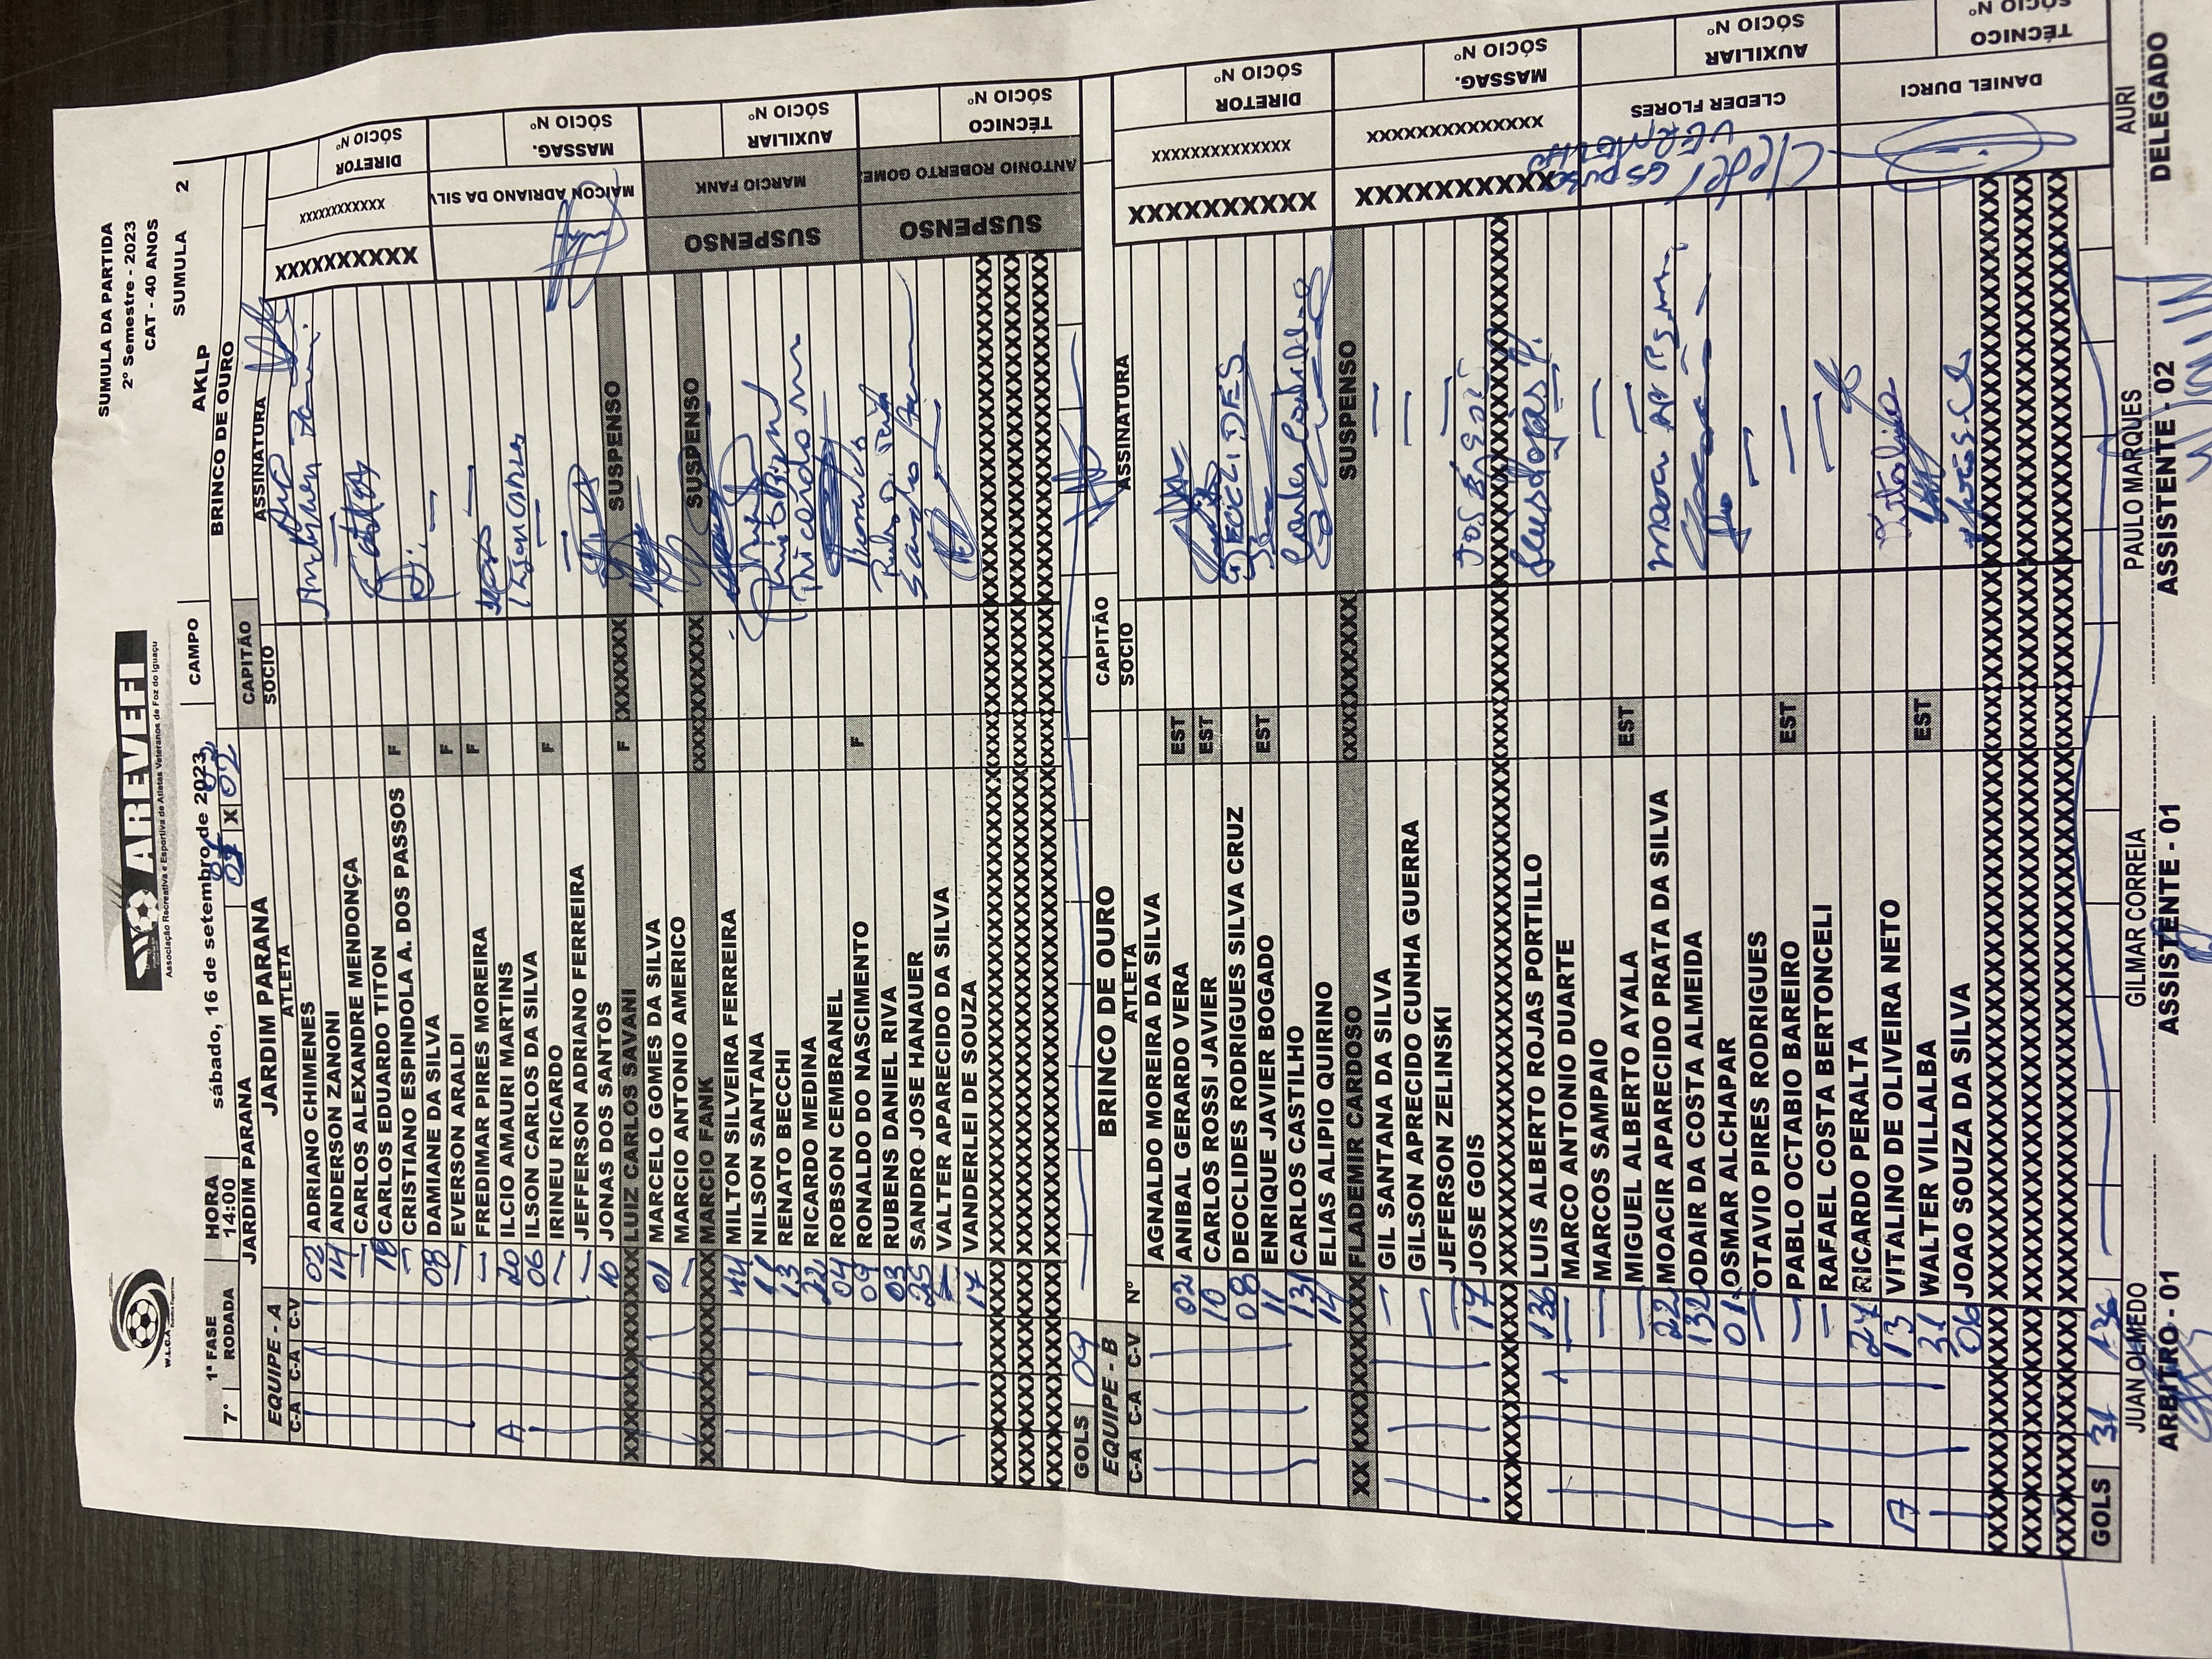 W.L.C.A
AREVEFI
Associação Recreativa e Esportiva de Atletas Veteranos de Foz do Iguaçu
SUMULA DA PARTIDA
2º Semestre - 2023
CAT - 40 ANOS
1ª FASE HORA sábado, 16 de setembro de 2023 CAMPO AKLP SUMULA 2
7ª RODADA 14:00 JARDIM PARANA 01 X 02 BRINCO DE OURO
EQUIPE - A JARDIM PARANA CAPITÃO
C-A C-A C-V ATLETA SOCIO ASSINATURA
02 ADRIANO CHIMENES
14 ANDERSON ZANONI
— CARLOS ALEXANDRE MENDONÇA —
19 CARLOS EDUARDO TITON F
— CRISTIANO ESPINDOLA A. DOS PASSOS
08 DAMIANE DA SILVA F
— EVERSON ARALDI F —
— FREDIMAR PIRES MOREIRA —
A 20 ILCIO AMAURI MARTINS
06 ILSON CARLOS DA SILVA F
— IRINEU RICARDO —
— JEFFERSON ADRIANO FERREIRA —
10 JONAS DOS SANTOS
XXXXXXXXXX LUIZ CARLOS SAVANI F XXXXXXX SUSPENSO
01 MARCELO GOMES DA SILVA
— MARCIO ANTONIO AMERICO
XXXXXXXXXX MARCIO FANK XXXXXXXXXX SUSPENSO
44 MILTON SILVEIRA FERREIRA
11 NILSON SANTANA
13 RENATO BECCHI
22 RICARDO MEDINA
04 ROBSON CEMBRANEL
09 RONALDO DO NASCIMENTO F
03 RUBENS DANIEL RIVA
25 SANDRO JOSE HANAUER
VALTER APARECIDO DA SILVA
17 VANDERLEI DE SOUZA
GOLS 09
XXXXXXXXXX XXXXXXXXXXX DIRETOR SÓCIO Nº
MAICON ADRIANO DA SILV MASSAG. SÓCIO Nº
SUSPENSO MARCIO FANK AUXILIAR SÓCIO Nº
SUSPENSO ANTONIO ROBERTO GOME TÉCNICO SÓCIO Nº
EQUIPE - B BRINCO DE OURO CAPITÃO
C-A C-A C-V Nº ATLETA SOCIO ASSINATURA
AGNALDO MOREIRA DA SILVA
02 ANIBAL GERARDO VERA EST
10 CARLOS ROSSI JAVIER EST
08 DEOCLIDES RODRIGUES SILVA CRUZ DEOCLIDES
11 ENRIQUE JAVIER BOGADO EST
131 CARLOS CASTILHO Carlos Castilho
14 ELIAS ALIPIO QUIRINO
XX XXXXXXXXXX FLADEMIR CARDOSO XXXXXXXXXX SUSPENSO
— GIL SANTANA DA SILVA —
— GILSON APRECIDO CUNHA GUERRA —
— JEFFERSON ZELINSKI —
17 JOSE GOIS
136 LUIS ALBERTO ROJAS PORTILLO
— MARCO ANTONIO DUARTE —
— MARCOS SAMPAIO —
— MIGUEL ALBERTO AYALA EST —
22 MOACIR APARECIDO PRATA DA SILVA
132 ODAIR DA COSTA ALMEIDA
01 OSMAR ALCHAPAR
— OTAVIO PIRES RODRIGUES —
— PABLO OCTABIO BAREIRO EST —
— RAFAEL COSTA BERTONCELI —
27 RICARDO PERALTA
A 13 VITALINO DE OLIVEIRA NETO Vitalino
31 WALTER VILLALBA EST
06 JOAO SOUZA DA SILVA
GOLS 31 136
XXXXXXXXXX XXXXXXXXXXXXXX DIRETOR SÓCIO Nº
XXXXXXXXXXX XXXXXXXXXXXXXX MASSAG. SÓCIO Nº
CLEDER FLORES AUXILIAR SÓCIO Nº
VERMELHO
DANIEL DURCI TÉCNICO SÓCIO Nº
JUAN OLMEDO GILMAR CORREIA PAULO MARQUES AURI
ARBITRO - 01 ASSISTENTE - 01 ASSISTENTE - 02 DELEGADO